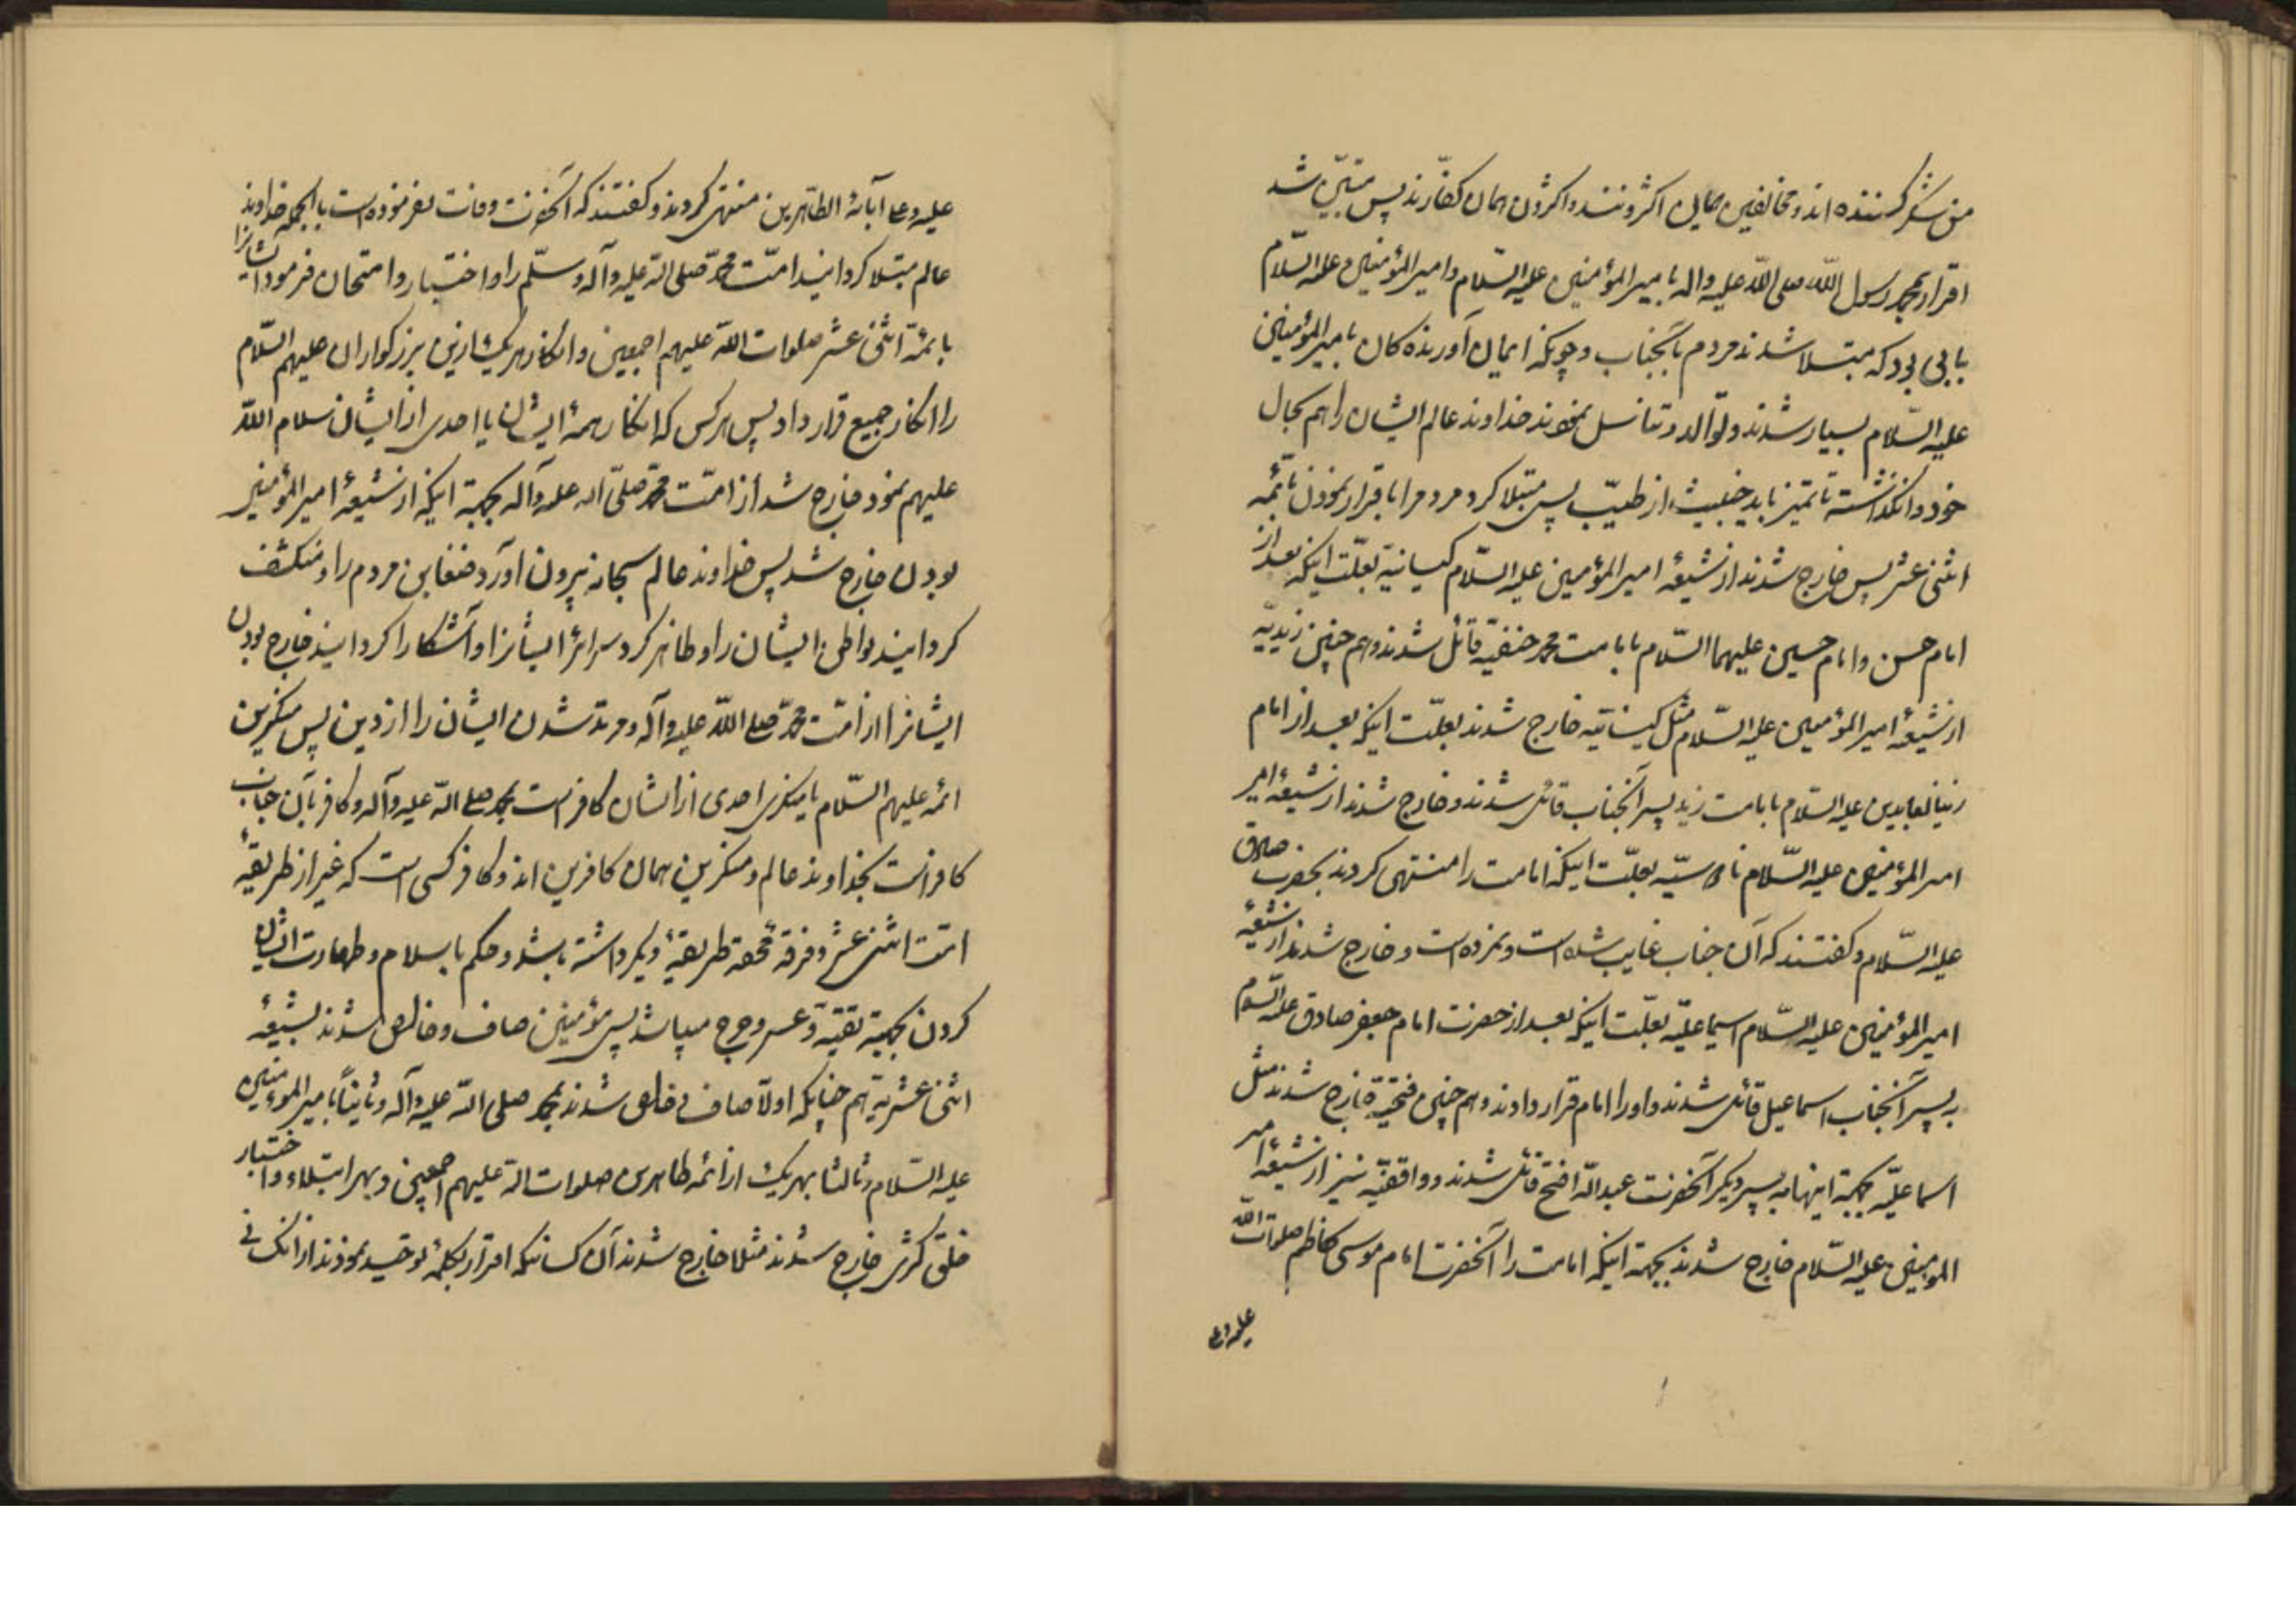 من شکر کننده اند و مخالفین همان اکثرونند و اکثرون همان کفارند پس مبیّن شد
اقرار بمحمد رسول الله صلی الله علیه واله بامیرالمؤمنین علیه السّلام و امیرالمؤمنین علیه السّلام
بابی بود که مبتلا شدند مردم بآنجناب و چونکه ایمان آورنده کان بامیرالمؤمنین
علیه السّلام بسیار شدند و توالد و تناسل نمودند خداوند عالم ایشان را هم بحال
خود وانگذاشته تا تمیز یابد خبیث از طیّب پس مبتلا کرد مردم را باقرار نمودن بائمه
اثنی عشر پس خارج شدند از شیعهٔ امیرالمؤمنین علیه السّلام کیسانیّه بعلّت اینکه بعد از
امام حسن و امام حسین علیهما السّلام بامامت محمد حنفیّه قائل شدند و هم چنین زیدیّه
از شیعهٔ امیرالمؤمنین علیه السّلام مثل کیسانیّه خارج شدند بعلّت اینکه بعد از امام
زین العابدین علیه السّلام بامامت زید پسر آنجناب قائل شدند و خارج شدند از شیعهٔ امیر
امیرالمؤمنین علیه السّلام ناوسیّه بعلّت اینکه امامت را منتهی کردند بحضرت صادق
علیه السّلام و گفتند که آن جناب غایب شده است و نمرده است و خارج شدند از شیعهٔ
امیرالمؤمنین علیه السّلام اسماعلیّه بعلّت اینکه بعد از حضرت امام جعفر صادق علیه السّلام
به پسر آنجناب اسماعیل قائل شدند و او را امام قرار دادند و هم چنین فتحیّة خارج شدند مثل
اسماعلیّه بجهة اینها به پسر دیگر آنحضرت عبدالله افتح قائل شدند و واقفیّه نیز از شیعهٔ امیر
المؤمنین علیه السّلام خارج شدند بجهة اینکه امامت را آنحضرت امام موسی کاظم صلوات الله
علیه وعلی
علیه وعلی آبائه الطاهرین منتهی کردند و گفتند که آنحضرت وفات نفرموده است بالجمله خداوند
عالم مبتلا گردانید امّت محمد صلی الله علیه وآله وسلّم را و اختبار و امتحان فرمود ایشانرا
بائمّه اثنی عشر صلوات الله علیهم اجمعین و انکار هر یک از این بزرگواران علیهم السّلام
را انکار جمیع قرار داد پس هر کس که انکار همهٔ ایشان یا احدی از ایشان سلام الله
علیهم نمود خارج شد از امّت محمد صلّی الله علیه وآله بجهة اینکه از شیعهٔ امیرالمؤمنین
بودن خارج شد پس خداوند عالم سبحانه بیرون آورد ضغاین مردم را و منکشف
گردانید بواطن ایشان را و ظاهر کرد سرائر ایشانرا و آشکارا گردانید خارج بودن
ایشانرا از امّت محمد صلی الله علیه وآله و مرتد شدن ایشان را از دین پس منکرین
ائمه علیهم السّلام یا منکر احدی از ایشان کافر است بمحمد صلی الله علیه وآله و کافر بآن جناب
کافر است بخداوند عالم و منکرین همان کافرین اند و کافر کسی است که غیر از طریقهٔ
ائمه اثنی عشر و فرقه محقه طریقهٔ دیگر داشته باشد و حکم باسلام و طهارت ایشان
کردن بجهة تقیّة و عسر و حرج میباشد پس مؤمنین صاف و خالص شدند بشیعهٔ
اثنی عشریّه هم چنانکه اولا صاف و خالص شدند بمحمد صلی الله علیه وآله و ثانیاً بامیرالمؤمنین
علیه السّلام و ثالثا بهر یک از ائمه طاهرین صلوات الله علیهم اجمعین و بهر ابتلاء و اختبار
خلق کثیری خارج شدند مثلا خارج شدند آن کسانیکه اقرار بکلمهٔ توحید نمودند از آنکسانی